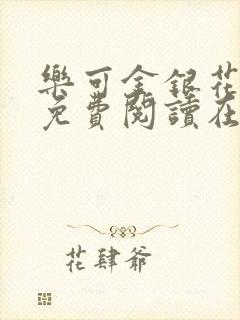 樂可金銀花
免費閱讀在
花肆爺